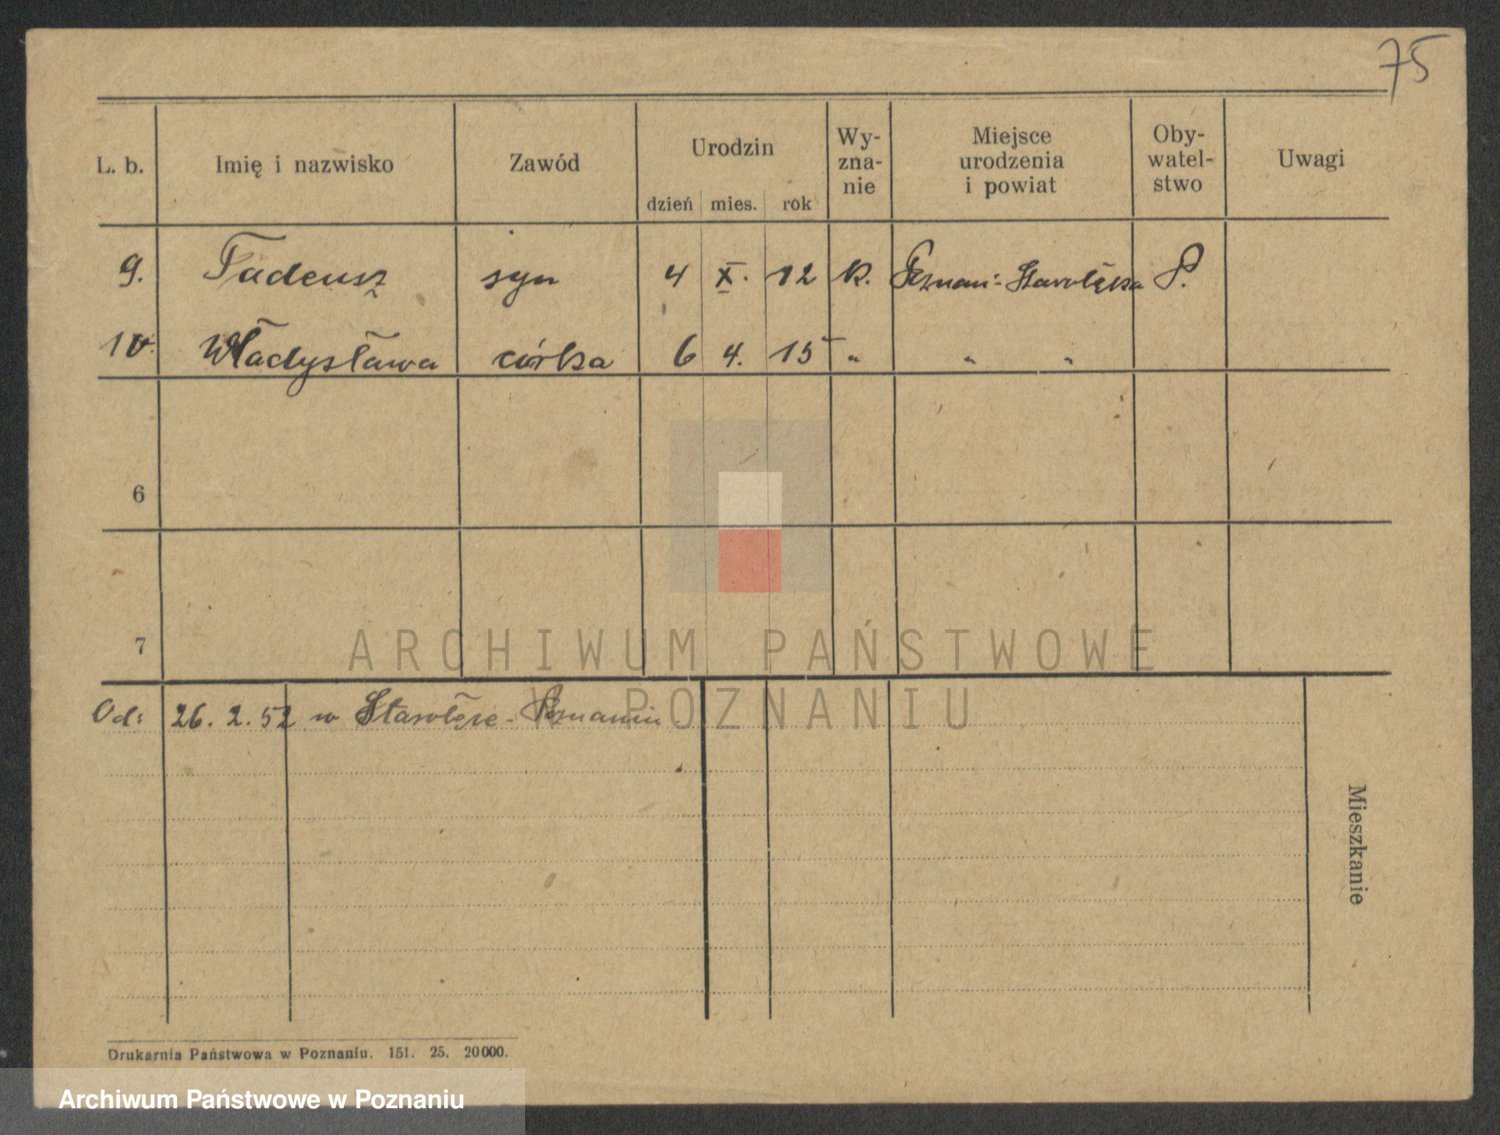 75
L. b. Imię i nazwisko Zawód Urodzin dzień mies. rok Wy-zna-nie Miejsce urodzenia i powiat Oby-watel-stwo Uwagi
9. Tadeusz syn 4 X. 12 k. Poznań-Starołęka P.
10. Władysława córka 6 4. 15 " " "
6
7
Od: 26. 2. 52 w Starołęce-Poznaniu
Mieszkanie
Drukarnia Państwowa w Poznaniu. 151. 25. 20000.
ARCHIWUM PAŃSTWOWE
W POZNANIU
Archiwum Państwowe w Poznaniu